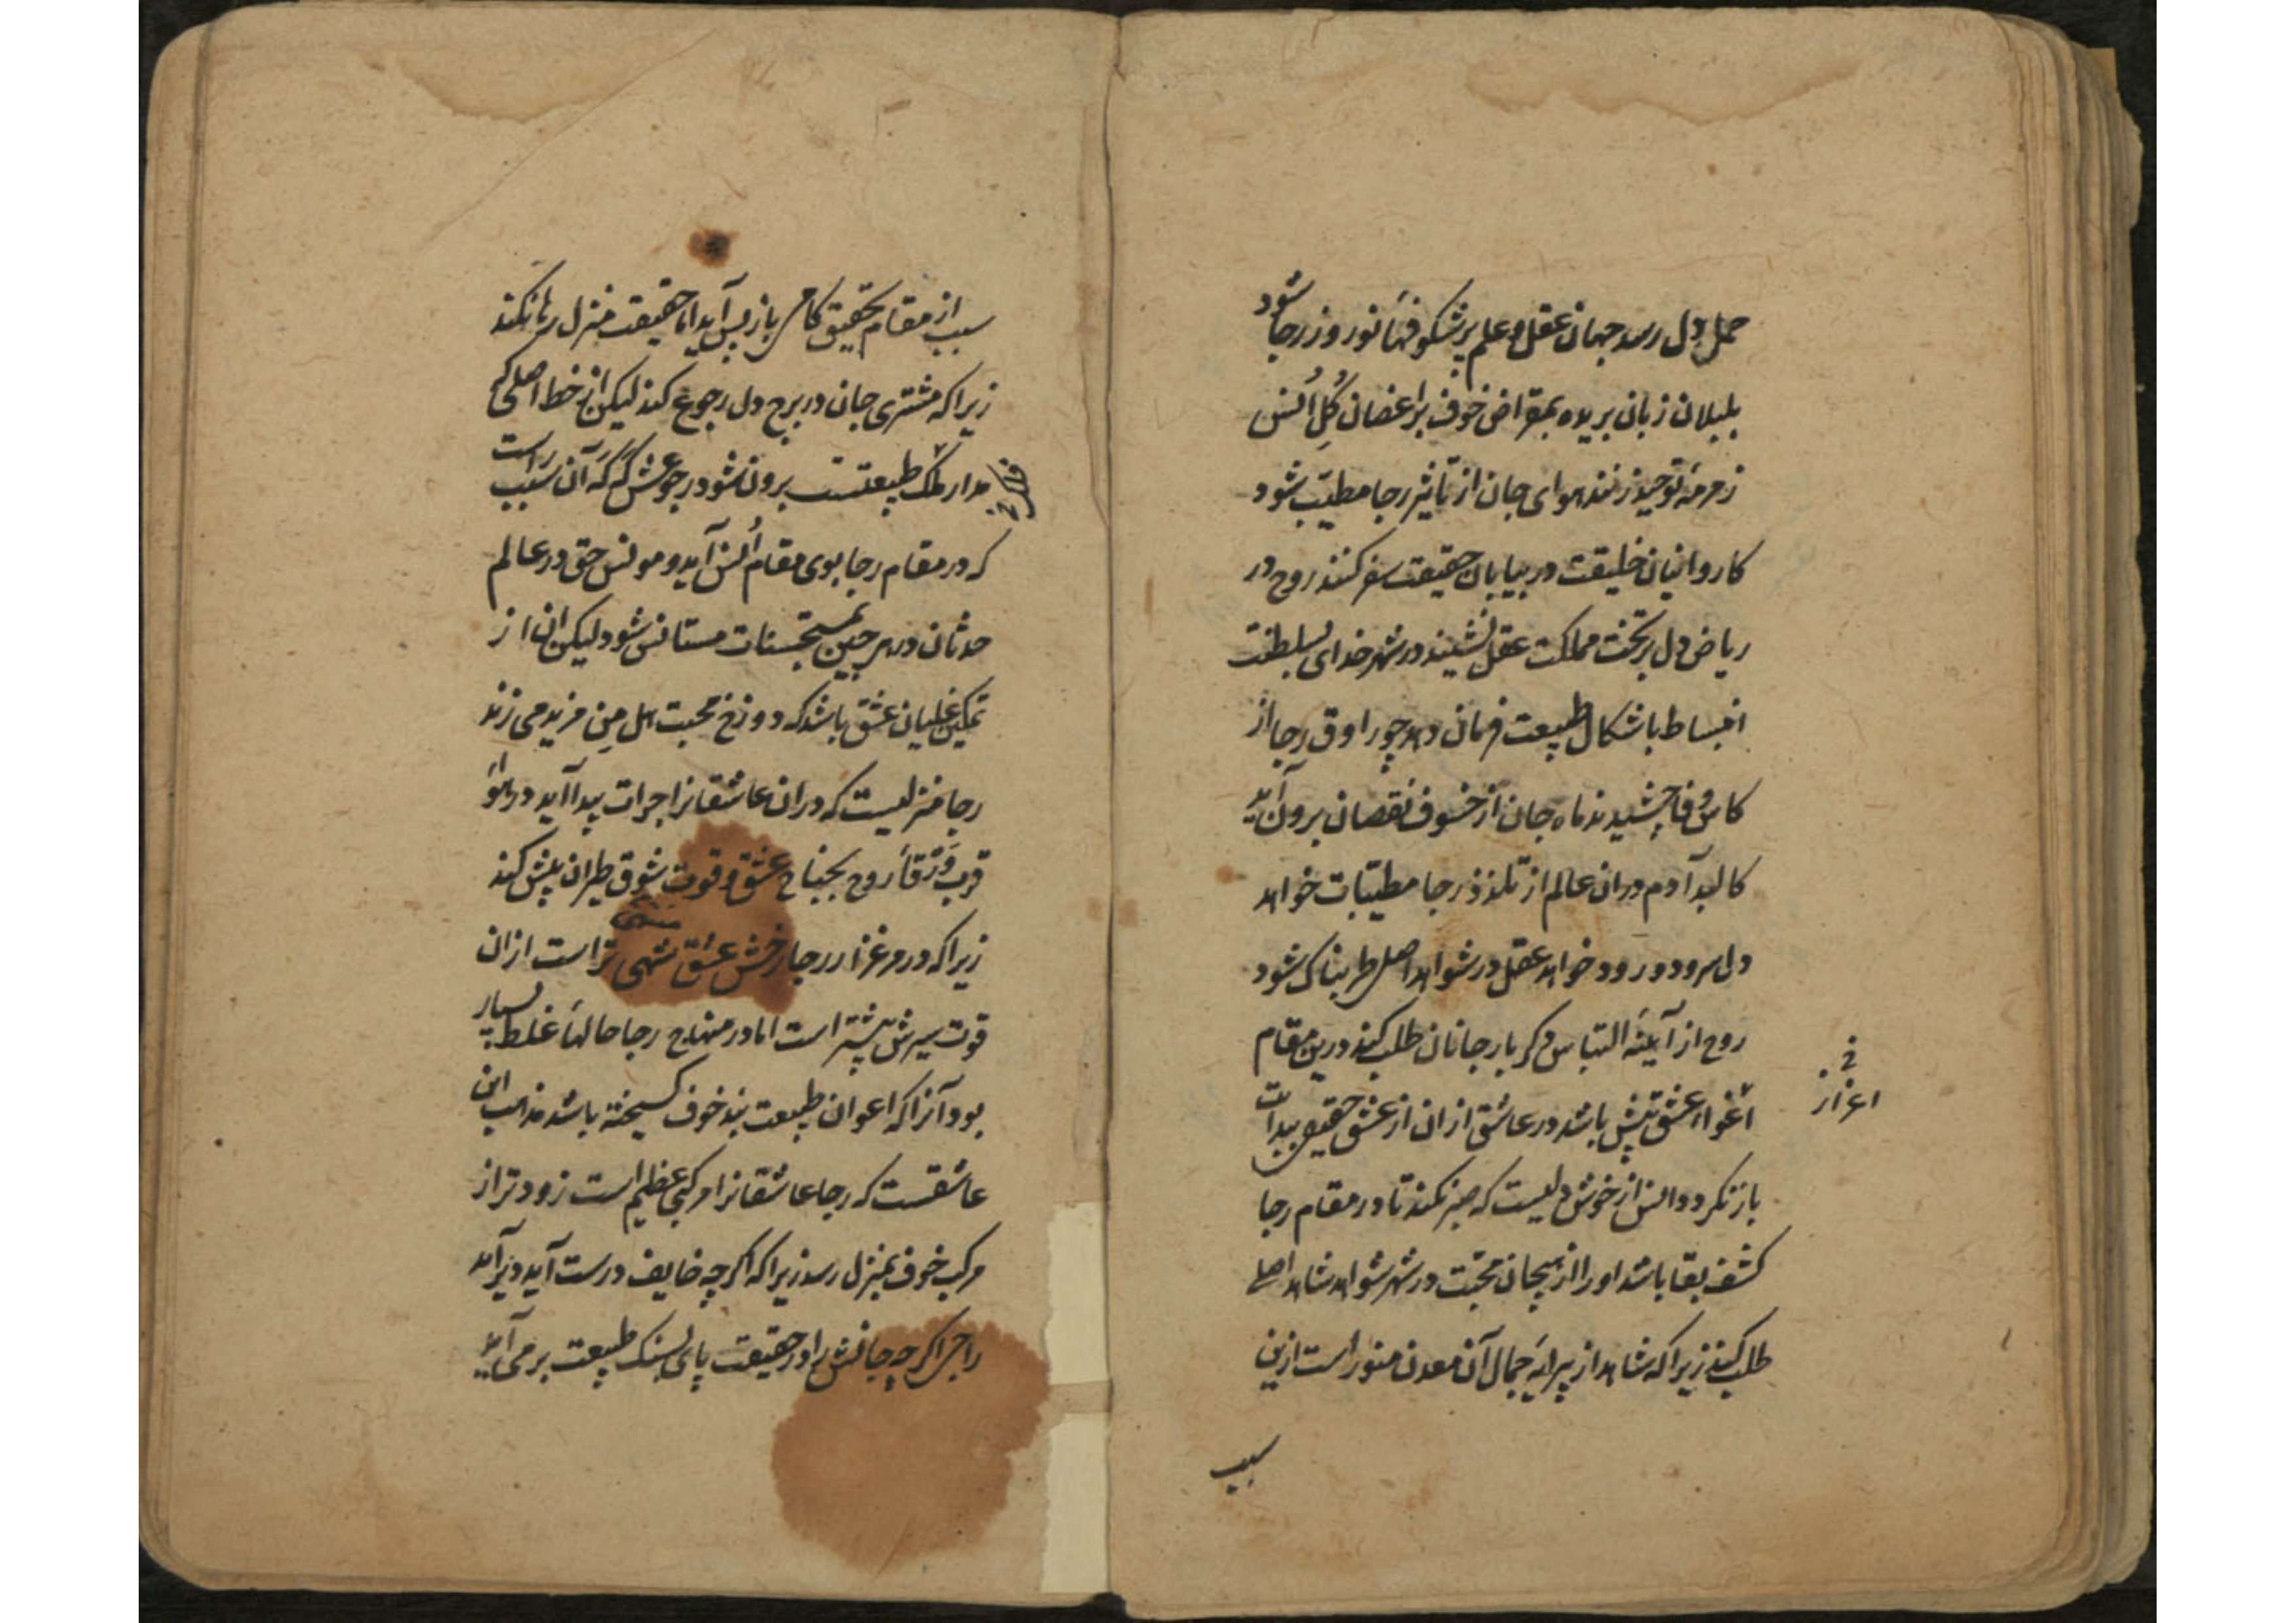 حمل دل رسد جهان عقل و علم پر شکوفهٔا نوروز رجا شود
بلبلان زبان بریده بمقراض خوف بر اغصان گُلِ اُنس
زمزمهٔ توحید زنند هوای جان از تأثیر رجا مطیّب شود
کاروانیان خلیقت در بیابان حقیقت سفر کنند روح در
ریاض دل بر تخت مملکت عقل نشیند در شهر خدای بسلطنت
انبساط باشکال طبیعت فرمان دهد چو راوق رجا از
کاس وفا چشیدند ماه جان از خسوف نقصان برون آید
کالبد آدم دران عالم از تلذذ رجا مطیّبات خواهد
دل سرود و رود خواهد عقل در شواهد اصل طربناک شود
روح از آیینهٔ التباس ذکر بار جانان طلب کند درین مقام
اغواء عشق بیش باشد در عاشق از ان از عشق حقیقی پیدا است
اعزاز خ
باز نکردد انس از خوش دلیست که صبر نکند تا در مقام رجا
کشف بقا باشد او را از هیجان محبّت در شهر شواهد شاهد اصلی
طلب کند زیرا که شاهد از پیرایهٔ جمال آن معدن منور است ازین
سبب
سبب از مقام تحقیق کاهی باز پس آید اما حقیقت منزل رها نکند
زیرا که مشتری جان در برج دل رجوع کند لیکن از خط اصلی کی
مدار ملک طبیعتست برون نشود رجوعش که که آن سبب راست
فلک خ
که در مقام رجا بوی مقام اُنس آید و مونس حق در عالم
حدثان در هر حین بمستحسنات مستانس شود لیکن ان از
تمکین غلیان عشق باشد که دوزخ محبت هل مِن مزید می زند
رجا منزلیست که دران عاشقانرا جرات پیدا آید در هواء
قرب وَرْقأ روح بجناح عشق و قوت شوق طیران بیش کند
زیرا که در مرغزار رجا رخش عشق تهی تر است ازان
قوت سیرش بیشتر است اما در منهاج رجا حالهأ غلط بسیار
بود آنرا که اعوان طبیعت بند خوف کسیخته باشد مذهب این
عاشقست که رجا عاشقانرا مرکبی عظیم است زودتر از
مرکب خوف بمنزل رسد زیرا که اکر چه خایف درست آید دیر آید
راجی اکر چه جانش را در حقیقت پای بسنک طبیعت بر می آید